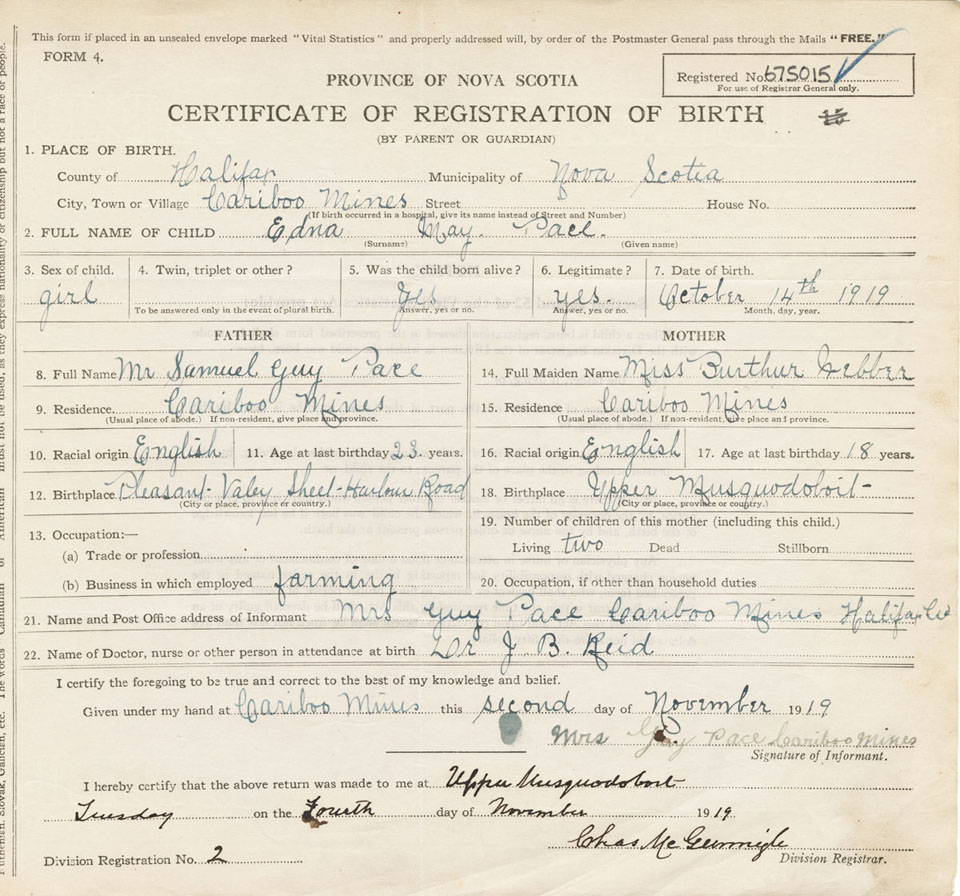 This form if placed in an unsealed envelope marked "Vital Statistics" and properly addressed will, by order of the Postmaster General pass through the Mails "FREE."
FORM 4.
Registered No. 675015
For use of Registrar General only.
PROVINCE OF NOVA SCOTIA
CERTIFICATE OF REGISTRATION OF BIRTH
(BY PARENT OR GUARDIAN)
1. PLACE OF BIRTH.
County of Halifax Municipality of Nova Scotia
City, Town or Village Cariboo Mines Street House No.
(If birth occurred in a hospital, give its name instead of Street and Number)
2. FULL NAME OF CHILD Edna May. Pace.
(Surname) (Given name)
3. Sex of child. 4. Twin, triplet or other? 5. Was the child born alive? 6. Legitimate? 7. Date of birth.
girl Yes yes. October 14th 1919
To be answered only in the event of plural birth. Answer, yes or no. Answer, yes or no. Month, day, year.
FATHER MOTHER
8. Full Name Mr Samuel Guy Pace 14. Full Maiden Name Miss Burthur Webber
9. Residence. Cariboo Mines 15. Residence Cariboo Mines
(Usual place of abode.) If non-resident, give place and province. (Usual place of abode.) If non-resident, give place and province.
10. Racial origin English 11. Age at last birthday 23. years. 16. Racial origin English 17. Age at last birthday 18 years.
12. Birthplace Pleasant-Valey Sheet-Harbour Road 18. Birthplace Upper Musquodoboit-
(City or place, province or country.) (City or place, province or country.)
13. Occupation:— 19. Number of children of this mother (including this child.)
(a) Trade or profession. Living two Dead Stillborn
(b) Business in which employed farming 20. Occupation, if other than household duties
21. Name and Post Office address of Informant Mrs Guy Pace Cariboo Mines Halifax Co
22. Name of Doctor, nurse or other person in attendance at birth Dr J. B. Reid
I certify the foregoing to be true and correct to the best of my knowledge and belief.
Given under my hand at Cariboo Mines this second day of November 1919
Mrs Guy Pace Cariboo Mines
Signature of Informant.
I hereby certify that the above return was made to me at Upper Musquodoboit
Tuesday on the Fourth day of November 1919.
Chas Mc
Division Registration No. 2 Division Registrar.